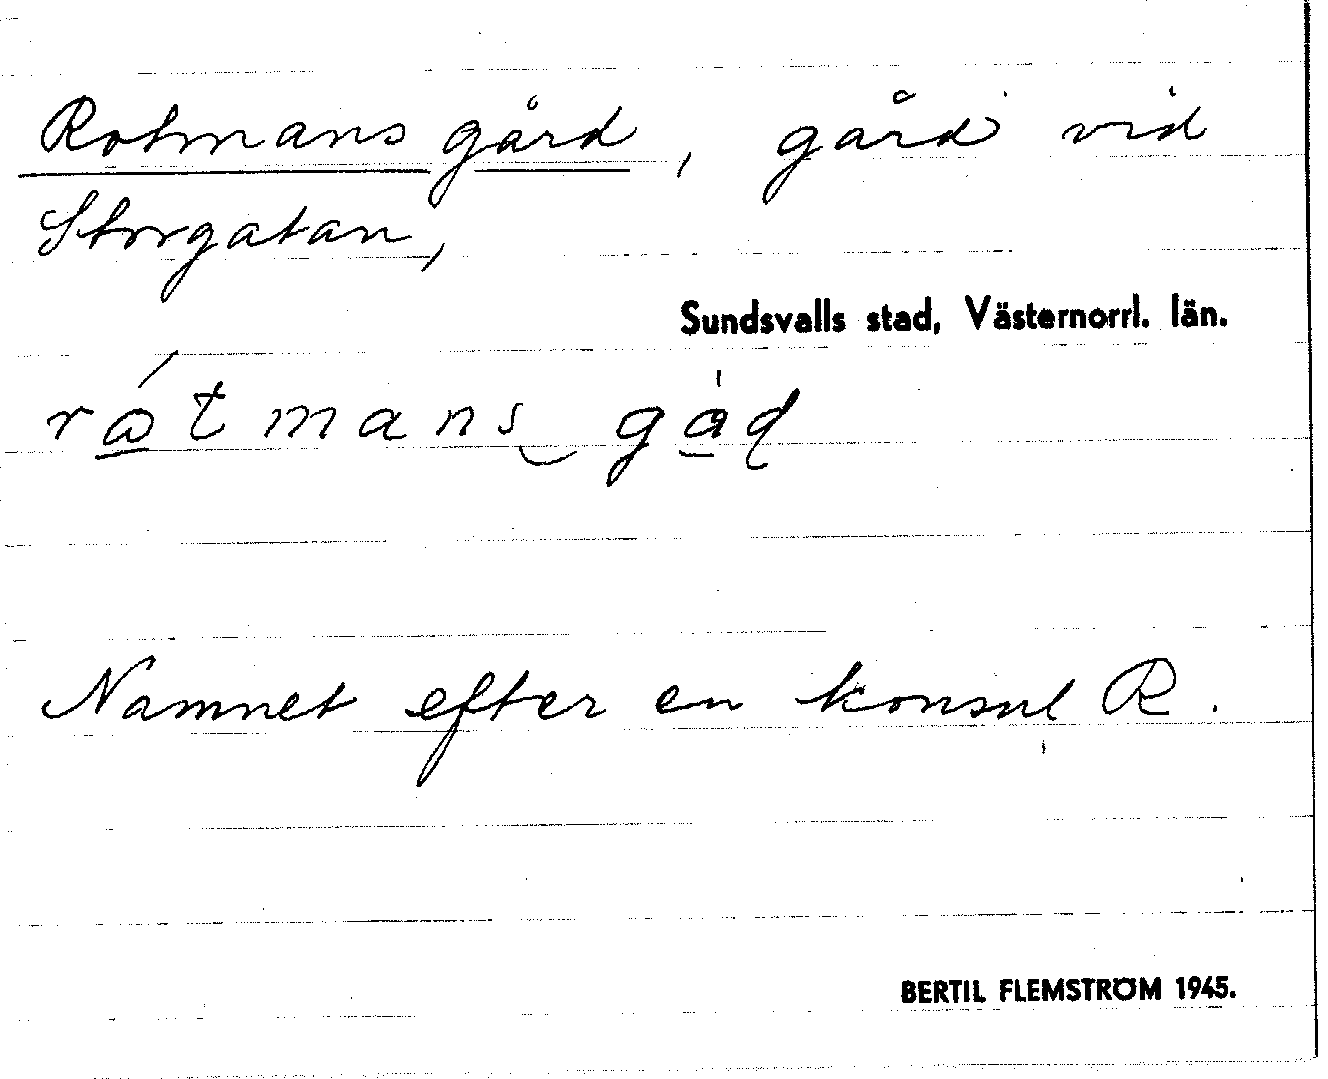 Rotmans gård, gård vid
Storgatan,
Sundsvalls stad, Västernorrl. län.
Namnet efter en konsul R.
BERTIL FLEMSTRÖM 1945.